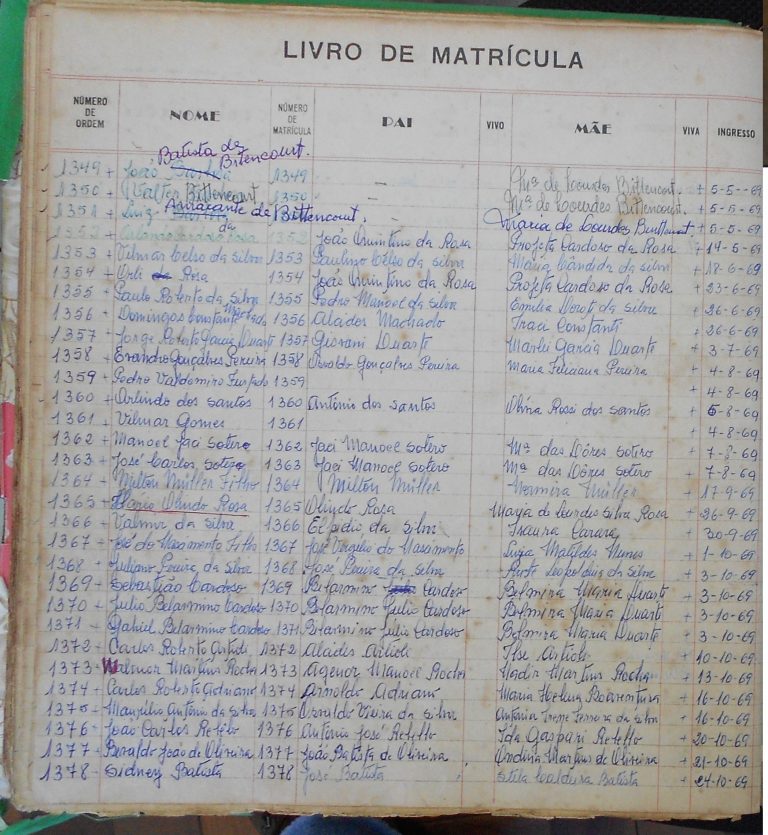 LIVRO DE MATRÍCULA
NÚMERO DE ORDEM NOME NÚMERO DE MATRÍCULA PAI VIVO MÃE VIVA INGRESSO
Batista de Bitencourt.
1349 + João 1349 - Mª de Lourdes Bittencourt. + 5-5-69
1350 + Walter Bittencourt 1350 - Mª de Lourdes Bittencourt. + 5-5-69
1351 + Luiz de Bittencourt. Maria de Lourdes Bittencourt + 5-5-69
1352 da Rosa 1352 João Quintino da Rosa Cardoso da Rosa + 14-5-69
1353 + Vilmar Celso da Silva 1353 Paulino Celso da Silva Maria Cândida da Silva + 18-6-69
1354 + Orli Rosa 1354 João Quintino da Rosa Cardoso da Rosa + 23-6-69
1355 + Paulo Roberto da Silva 1355 Pedro Manoel da Silva Emilia da Silva + 26-6-69
1356 + Domingos Constante Machado 1356 Alcides Machado Iraci Constante + 26-6-69
1357 + Jorge Roberto Garcia Duarte 1357 Giovani Duarte Marli Garcia Duarte + 3-7-69
1358 + Evandro Gonçalves Pereira 1358 Osvaldo Gonçalves Pereira Maria Feliciana Pereira + 4-8-69
1359 + Pedro Valdemiro Furtado 1359 + 4-8-69
1360 + Orlindo dos Santos 1360 Antônio dos Santos Olivia Rossi dos Santos + 5-8-69
1361 + Vilmar Gomes 1361 + 4-8-69
1362 + Manoel Jaci Sotero 1362 Jaci Manoel Sotero Mª das Dôres Sotero + 7-8-69
1363 + José Carlos Sotero 1363 Jaci Manoel Sotero Mª das Dôres Sotero + 7-8-69
1364 + Milton Müller Filho 1364 Milton Müller Müller + 17-9-69
1365 + Olindo Rosa 1365 Olindo Rosa de Lourdes Silva Rosa + 26-9-69
1366 + Valmir da Silva 1366 Elpidio da Silva + 30-9-69
1367 + José do Nascimento Filho 1367 José Virgilio do Nascimento Luiza Nunes + 1-10-69
1368 + Juliano Pereira da Silva 1368 José Pereira da Silva Leopoldina da Silva + 3-10-69
1369 + Sebastião Cardoso 1369 Belarmino Cardoso Belmira Maria Duarte + 3-10-69
1370 + Julio Belarmino Cardoso 1370 Belarmino Julio Cardoso Belmira Maria Duarte + 3-10-69
1371 + Gabriel Belarmino Cardoso 1371 Belarmino Julio Cardoso Belmira Maria Duarte + 3-10-69
1372 + Carlos Roberto Artioli 1372 Alcides Artioli Ilse Artioli + 10-10-69
1373 Walmor Martins Rocha 1373 Agenor Manoel Rocha Nadir Martins Rocha + 13-10-69
1374 + Carlos Roberto Adriano 1374 Arnoldo Adriano Maria Boaventura + 16-10-69
1375 + Antônio da Silva 1375 Osvaldo Vieira da Silva Antônia Irene Ferreira da Silva + 16-10-69
1376 + João Carlos Rebelo 1376 Antônio José Rebello Ida Gaspari Rebello + 20-10-69
1377 + João de Oliveira 1377 João Batista de Oliveira Ondina Martins de Oliveira + 21-10-69
1378 + Sidney Batista 1378 José Batista Caldeira Batista + 24-10-69